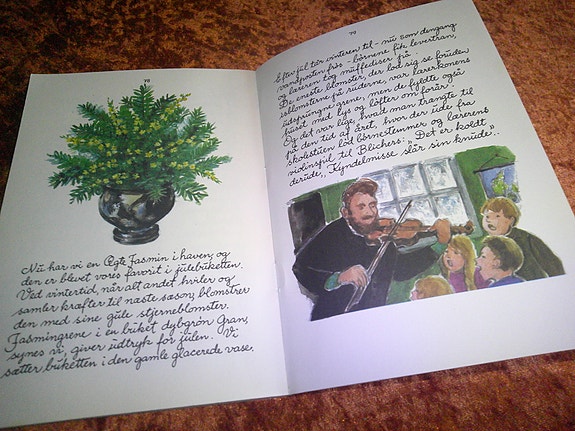 78
Nu har vi en Ægte Jasmin i haven, og
den er blevet vores favorit i julebuketten.
Ved vintertid, når alt andet hviler og
samler kræfter til næste sæson, blomstrer
den med sine gule stjerneblomster.
Jasmingrene i en buket dybgrøn Gran,
synes vi, giver udtryk for julen. Vi
sætter buketten i den gamle glacerede vase.
79
Efter jul tør vinteren til - nu som dengang
vandposten frøs - børnene fik levertran,
og læreren tog muffediser på.
De eneste blomster, der lod sig se foruden
isblomsterne på ruderne, var lærerkonens
udsprungne grene, men de fyldte også
huset med lys og løfter om forår.
Og det var lige, hvad man trængte til
på den tid af året, hvor der ude fra
skolestuen lød børnestemmer og lærerens
violinspil til Blichers: „Det er koldt
derude, „Kyndelmisse slår sin knude"..